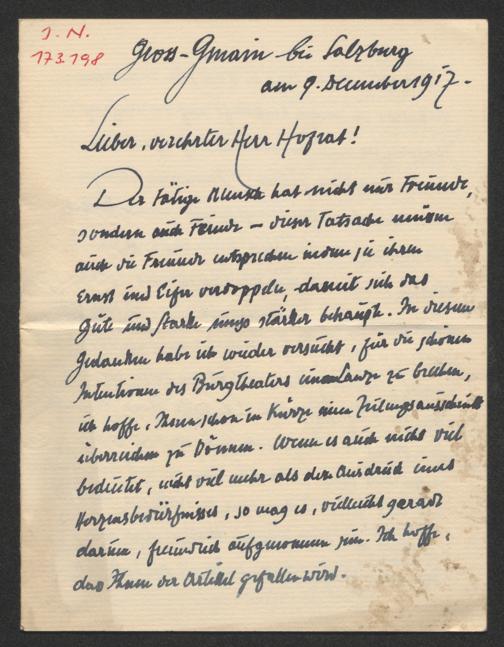 I. N.
173.198
Gross-Gmain bei Salzburg
am 9. December 1917.
Lieber, verehrter Herr Hofrat!
Der tätige Mensch hat nicht nur Freunde,
sondern auch Feinde – dieser Tatsache müssen
auch die Freunde entsprechen indem sie ihren
Ernst und Eifer verdoppeln, damit sich das
Gute und Starke umso stärker behaupte. In diesem
Gedanken habe ich wieder versucht, für die schönen
Intentionen des Burgtheaters eine Lanze zu brechen,
ich hoffe, Ihnen schon in Kürze einen Zeitungsausschnitt
überreichen zu können. Wenn es auch nicht viel
bedeutet, nicht viel mehr als den Ausdruck eines
Herzensbedürfnisses, so mag es, vielleicht gerade
darum, freundlich aufgenommen sein. Ich hoffe,
dass Ihnen der Artikel gefallen wird.